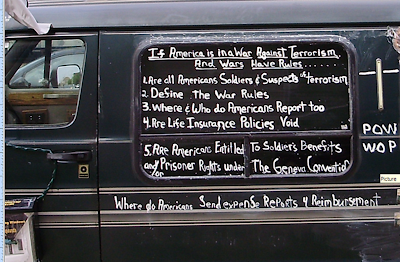 If America is in a War Against Terrorism
And Wars Have Rules......
1. Are all Americans Soldiers & Suspects of Terrorism
2. Define The War Rules
3. Where & Who do Americans Report too
4. Are Life Insurance Policies Void
5. Are Americans Entitled To Soldier's Benefits
and/or Prisoner Rights under The Geneva Convention
Where do Americans Send expense Reports 4 Reimbursement
POW
WOP
Picture